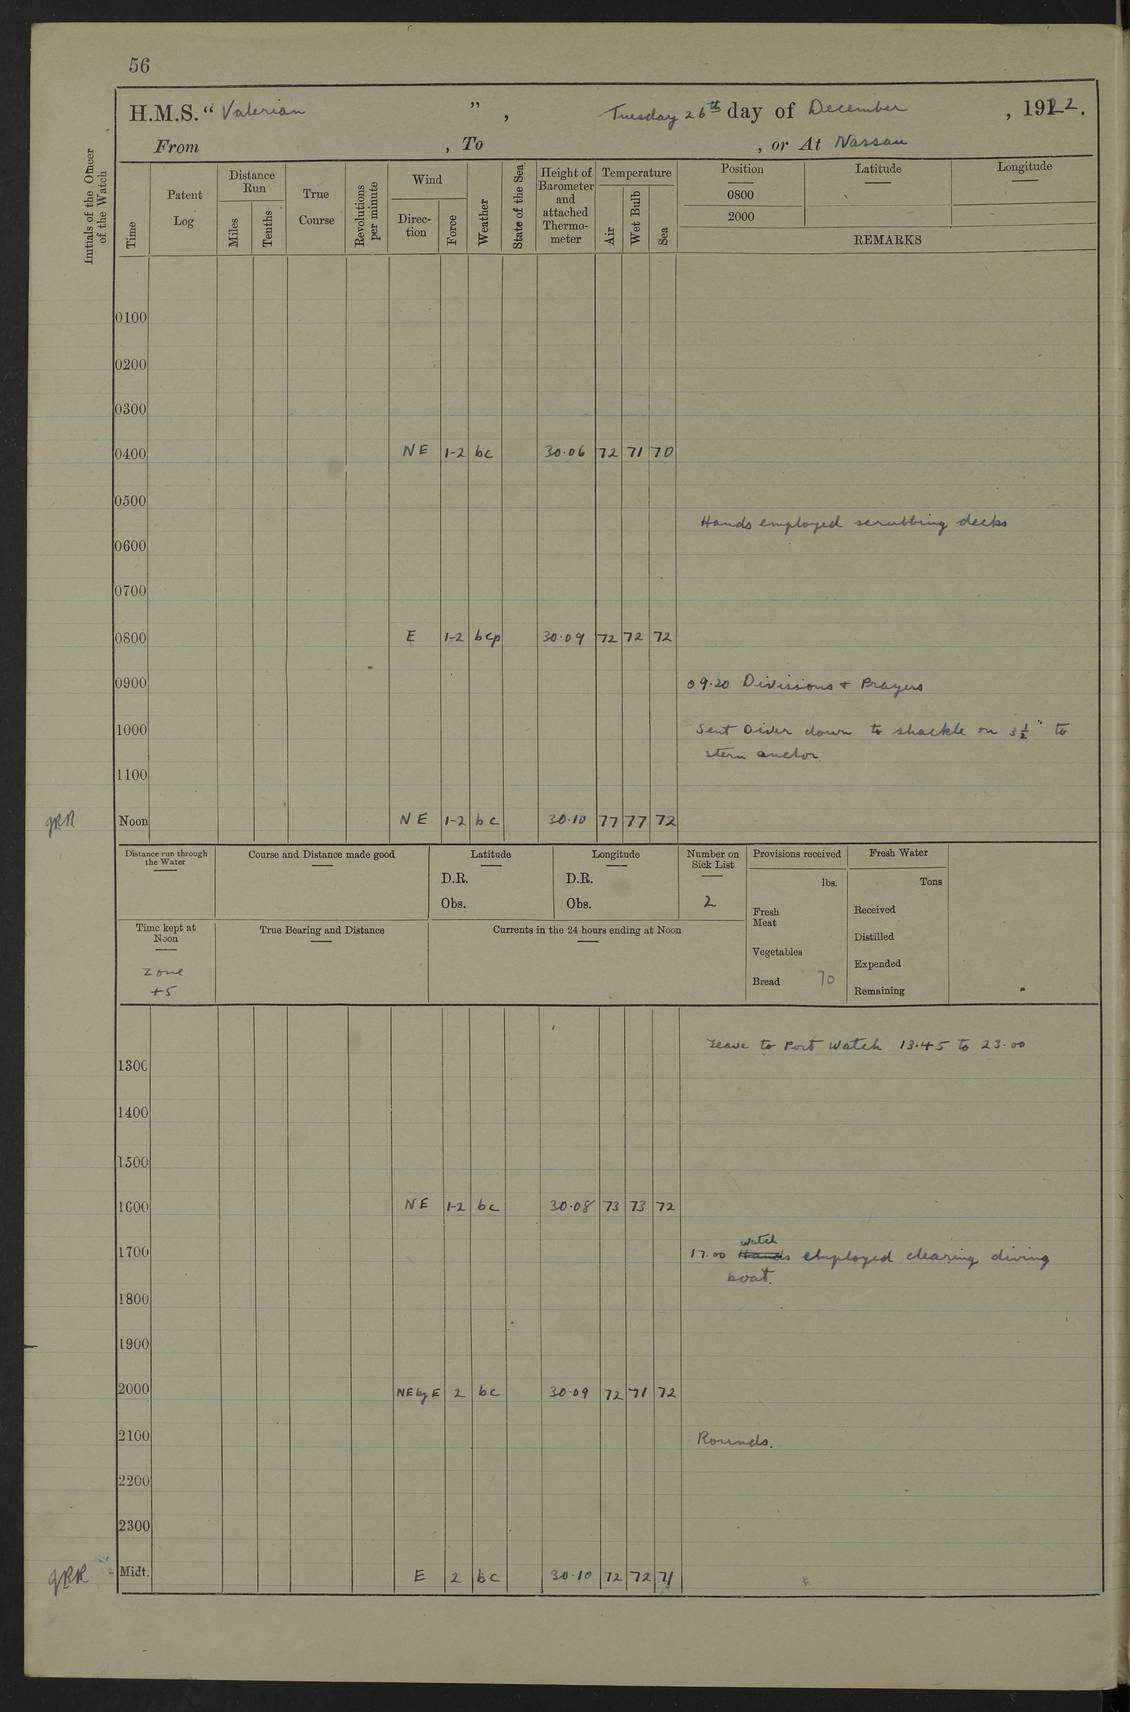 56
H.M.S. “ Valerian ”, Tuesday 26th day of December , 1922.
From , To , or At Nassau
Initials of the Officer of the Watch
Time
Patent Log
Distance Run
Miles
Tenths
True Course
Revolutions per minute
Wind
Direction
Force
Weather
State of the Sea
Height of Barometer and attached Thermometer
Temperature
Air
Wet Bulb
Sea
Position
Latitude
Longitude
0800
2000
REMARKS
0100
0200
0300
0400 NE 1-2 bc 30·06 72 71 70
0500
Hands employed scrubbing decks
0600
0700
0800 E 1-2 bcp 30·09 72 72 72
0900 09·20 Divisions + Prayers
1000 Sent Diver down to shackle on 3½" to
stern anchor.
1100
Noon NE 1-2 bc 30·10 77 77 72
Distance run through the Water
Course and Distance made good
Latitude
D.R.
Obs.
Longitude
D.R.
Obs.
Number on Sick List
2
Provisions received
lbs.
Fresh Meat
Vegetables
Bread 70
Fresh Water
Tons
Received
Distilled
Expended
Remaining
Time kept at Noon
Zone
+5
True Bearing and Distance
Currents in the 24 hours ending at Noon
Leave to Port Watch 13·45 to 23·00
1300
1400
1500
1600 NE 1-2 bc 30·08 73 73 72
watch
1700 17·00 Hands employed clearing diving
boat.
1800
1900
2000 NE by E 2 bc 30·09 72 71 72
2100 Rounds.
2200
2300
Midt. E 2 bc 30·10 72 72 71